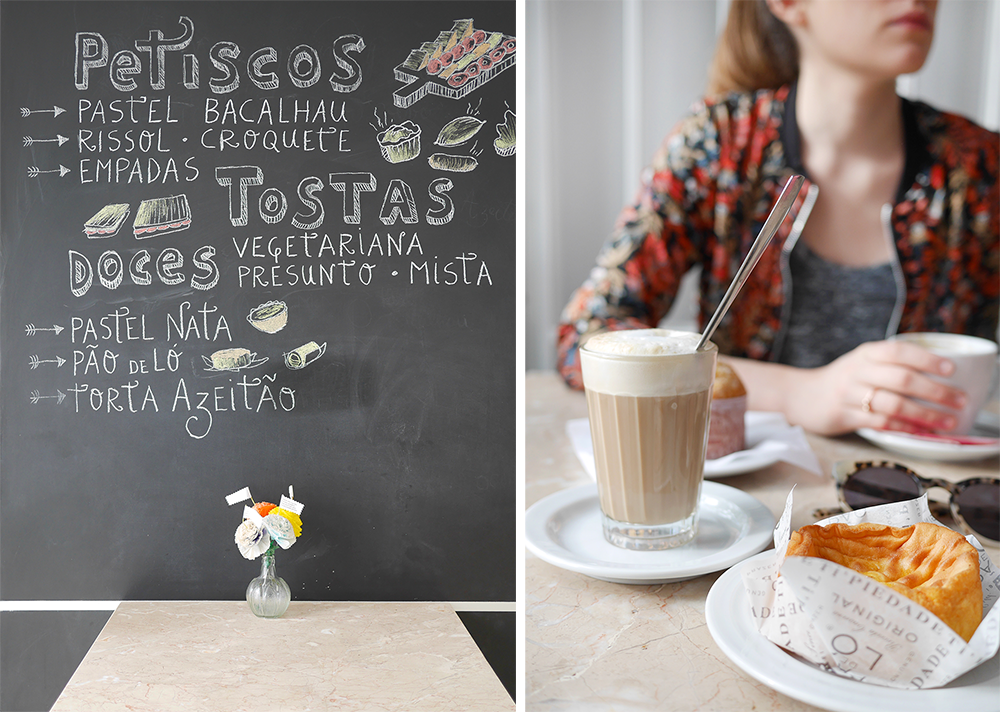 Petiscos
PASTEL BACALHAU
RISSOL · CROQUETE
EMPADAS
TOSTAS
VEGETARIANA
PRESUNTO · MISTA
DOCES
PASTEL NATA
PÃO DE LÓ
TORTA AZEITÃO
PIEDADE
ORIGINAL
LÓ
DADE